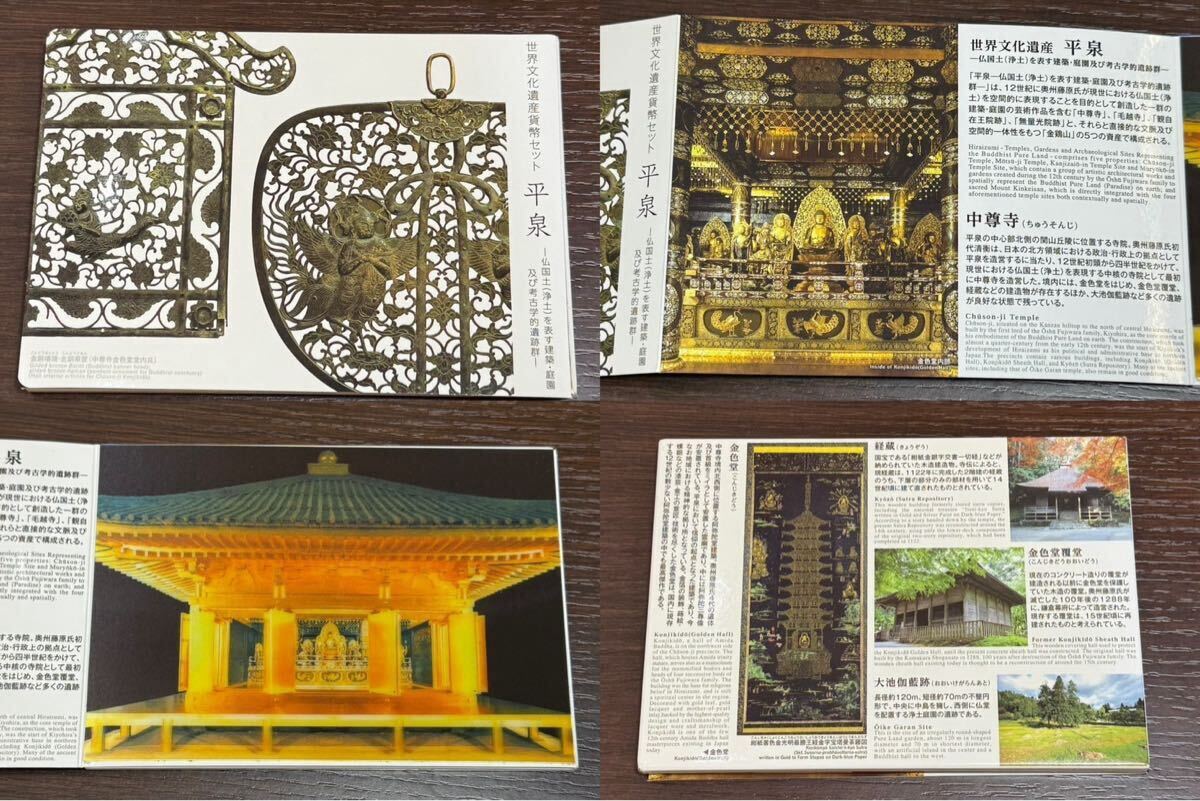 世界文化遺産貨幣セット 平泉
―仏国土(浄土)を表す建築・庭園
及び考古学的遺跡群―
金銅幡頭・金銅華鬘(中尊寺金色堂堂内具)
世界文化遺産貨幣セット 平泉
―仏国土(浄土)を表す建築・庭園
及び考古学的遺跡群―
金色堂内部
Inside of Konjikidō(Golden Hall)
世界文化遺産 平泉
―仏国土(浄土)を表す建築・庭園及び考古学的遺跡群―
「平泉―仏国土(浄土)を表す建築・庭園及び考古学的遺跡
群―」は、12世紀に奥州藤原氏が現世における仏国土(浄
土)を空間的に表現することを目的として創造した一群の
建築・庭園の芸術作品を含む「中尊寺」、「毛越寺」、「観自
在王院跡」、「無量光院跡」と、それらと直接的な文脈及び
空間的一体性をもつ「金鶏山」の5つの資産で構成される。
Hiraizumi - Temples, Gardens and Archaeological Sites Representing
the Buddhist Pure Land - comprises five properties: Chūson-ji
Temple, Mōtsū-ji Temple, Kanjizaiō-in Temple Site and Muryōkō-in
Temple Site, which contain a group of artistic architectural works and
gardens created during the 12th century by the Ōshū Fujiwara family to
spatially represent the Buddhist Pure Land (Paradise) on earth; and
sacred Mount Kinkeisan, which is directly integrated with the four
aforementioned temple sites both contextually and spatially.
中尊寺(ちゅうそんじ)
平泉の中心部北側の関山丘陵に位置する寺院。奥州藤原氏初
代清衡は、日本の北方領域における政治・行政上の拠点として
平泉を造営するに当たり、12世紀初頭から四半世紀をかけて、
現世における仏国土(浄土)を表現する中核の寺院として最初
に中尊寺を造営した。境内には、金色堂をはじめ、金色堂覆堂、
経蔵などの建造物が存在するほか、大池伽藍跡など多くの遺跡
が良好な状態で残っている。
Chūson-ji Temple
Chūson-ji, situated on the Kanzan hilltop to the north of central Hiraizumi, was
built by the first lord of the Ōshū Fujiwara family, Kiyohira, as the core temple of
his embodiment of the Buddhist Pureland on the earth. The construction, which took
almost a quarter-century from the early 12th century, was the start of Kiyohira's
development of Hiraizumi as his political and administrative base in northern
Japan.The precincts contain various buildings, including Konjikidō (Golden
Hall), Konjikidō Sheath Hall and Kyōzō (Sutra Repository). Many of the ancient
sites, including that of Ōike Garan temple, also remain in good condition.
泉
園及び考古学的遺跡群―
築・庭園及び考古学的遺跡
が現世における仏国土(浄
的として創造した一群の
尊寺」、「毛越寺」、「観自
らと直接的な文脈及び
5つの資産で構成される。
haeological Sites Representing
five properties: Chūson-ji
Site and Muryōkō-in
tic architectural works and
the Ōshū Fujiwara family to
nd (Paradise) on earth; and
tly integrated with the four
ually and spatially.
する寺院。奥州藤原氏初
政治・行政上の拠点として
から四半世紀をかけて、
る中核の寺院として最初
をはじめ、金色堂覆堂、
池伽藍跡など多くの遺跡
rth of central Hiraizumi, was
iyohira, as the core temple of
The construction, which took
was the start of Kiyohira's
nistrative base in northern
cluding Konjikidō (Golden
sitory). Many of the ancient
n in good condition.
金色堂(こんじきどう)
中尊寺境内北西側に位置する阿弥陀堂建築。奥州藤原氏4代の遺体
及び首級をミイラとして安置した霊廟であり、中には阿弥陀三尊像
Konjikidō(Golden Hall)
Konjikidō, a hall of Amida
Buddha, is on the northwest side
of the Chūson-ji precincts. The
hall, which houses Amida trinity
statues, serves also as a mausoleum
for the mummified bodies and
heads of four successive lords of the
Ōshū Fujiwara family. The
building was the base for religious
belief in Hiraizumi, and is still
a spiritual center in the region.
Decorated with gold leaf, gold
lacquer and mother-of-pearl
inlay backed by the highest quality
design and craftsmanship of
lacquer ware and metalwork,
Konjikidō is one of the few
12th century Amida Buddha hall
masterpieces existing in Japan
today.
◀金色堂
紺紙著色金光明最勝王経金字宝塔曼荼羅図
written in Gold to Form Stupas on Dark-blue Paper
経蔵(きょうぞう)
国宝である「紺紙金銀字交書一切経」などが
納められていた木造建造物。寺伝によると、
経蔵は、1122年に完成した2階建の経蔵
のうち、下層の部分のみの部材を用いて14
世紀頃に建て直されたものとされている。
Kyōzō (Sutra Repository)
This wooden building formerly stored sutra copies,
including the national treasure "Issai-kyō Sutra
written in Gold and Silver Paint on Dark-blue Paper."
According to a story handed down by the temple, the
present Sutra Repository was reconstructed around the
14th century, using only the lower-deck component
of the original two-story repository, which had been
completed in 1122.
金色堂覆堂
(こんじきどうおおいどう)
現在のコンクリート造りの覆堂が
建造される以前に金色堂を保護し
ていた木造の覆堂。奥州藤原氏が
滅亡した100年後の1288年
に、鎌倉幕府によって造営された。
現存する覆堂は、15世紀頃に再
建されたものと考えられている。
Former Konjikidō Sheath Hall
This wooden covering hall used to protect
the Konjikidō Golden Hall, until the present concrete sheath hall was constructed. The original hall was
built by the Kamakura Shogunate in 1288, 100 years after destruction of the Ōshū Fujiwara family. The
wooden sheath hall existing today is thought to be a reconstruction of around the 15th century.
大池伽藍跡(おおいけがらんあと)
長径約120m、短径約70mの不整円
形で、中央に中島を擁し、西側に仏堂
を配置する浄土庭園の遺跡である。
Ōike Garan Site
This is the site of an irregularly round-shaped
Pure Land garden, about 120 m in longest
diameter and 70 m in shortest diameter,
with an artificial island in the center and a
Buddhist hall to the west.